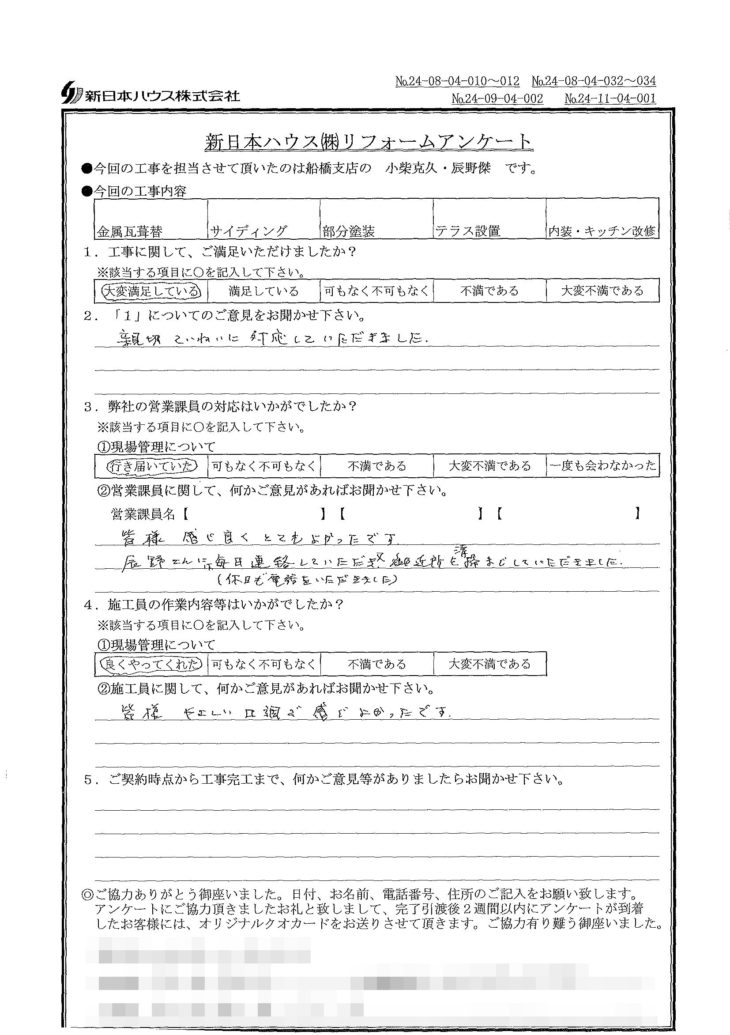 №24-08-04-010～012　№24-08-04-032～034
新日本ハウス株式会社
№24-09-04-002　№24-11-04-001
新日本ハウス㈱リフォームアンケート
●今回の工事を担当させて頂いたのは船橋支店の　小柴克久・辰野傑　です。
●今回の工事内容
金属瓦葺替　サイディング　部分塗装　テラス設置　内装・キッチン改修
１．工事に関して、ご満足いただけましたか？
※該当する項目に〇を記入して下さい。
大変満足している　満足している　可もなく不可もなく　不満である　大変不満である
２．「１」についてのご意見をお聞かせ下さい。
親切 ていねいに 対応して いただきました.
３．弊社の営業課員の対応はいかがでしたか？
※該当する項目に〇を記入して下さい。
①現場管理について
行き届いていた　可もなく不可もなく　不満である　大変不満である　一度も会わなかった
②営業課員に関して、何かご意見があればお聞かせ下さい。
営業課員名【　】【　】【　】
皆様 感じ良く とてもよかったです.
辰野さんに 毎日連絡していただき 近所 清掃までしていただきました.
(休日も電話をいただきました)
４．施工員の作業内容等はいかがでしたか？
※該当する項目に〇を記入して下さい。
①現場管理について
良くやってくれた　可もなく不可もなく　不満である　大変不満である
②施工員に関して、何かご意見があればお聞かせ下さい。
皆様 やさしい 口調で 感じ よかったです.
５．ご契約時点から工事完工まで、何かご意見等がありましたらお聞かせ下さい。
◎ご協力ありがとう御座いました。日付、お名前、電話番号、住所のご記入をお願い致します。
アンケートにご協力頂きましたお礼と致しまして、完了引渡後２週間以内にアンケートが到着
したお客様には、オリジナルクオカードをお送りさせて頂きます。ご協力有り難う御座いました。